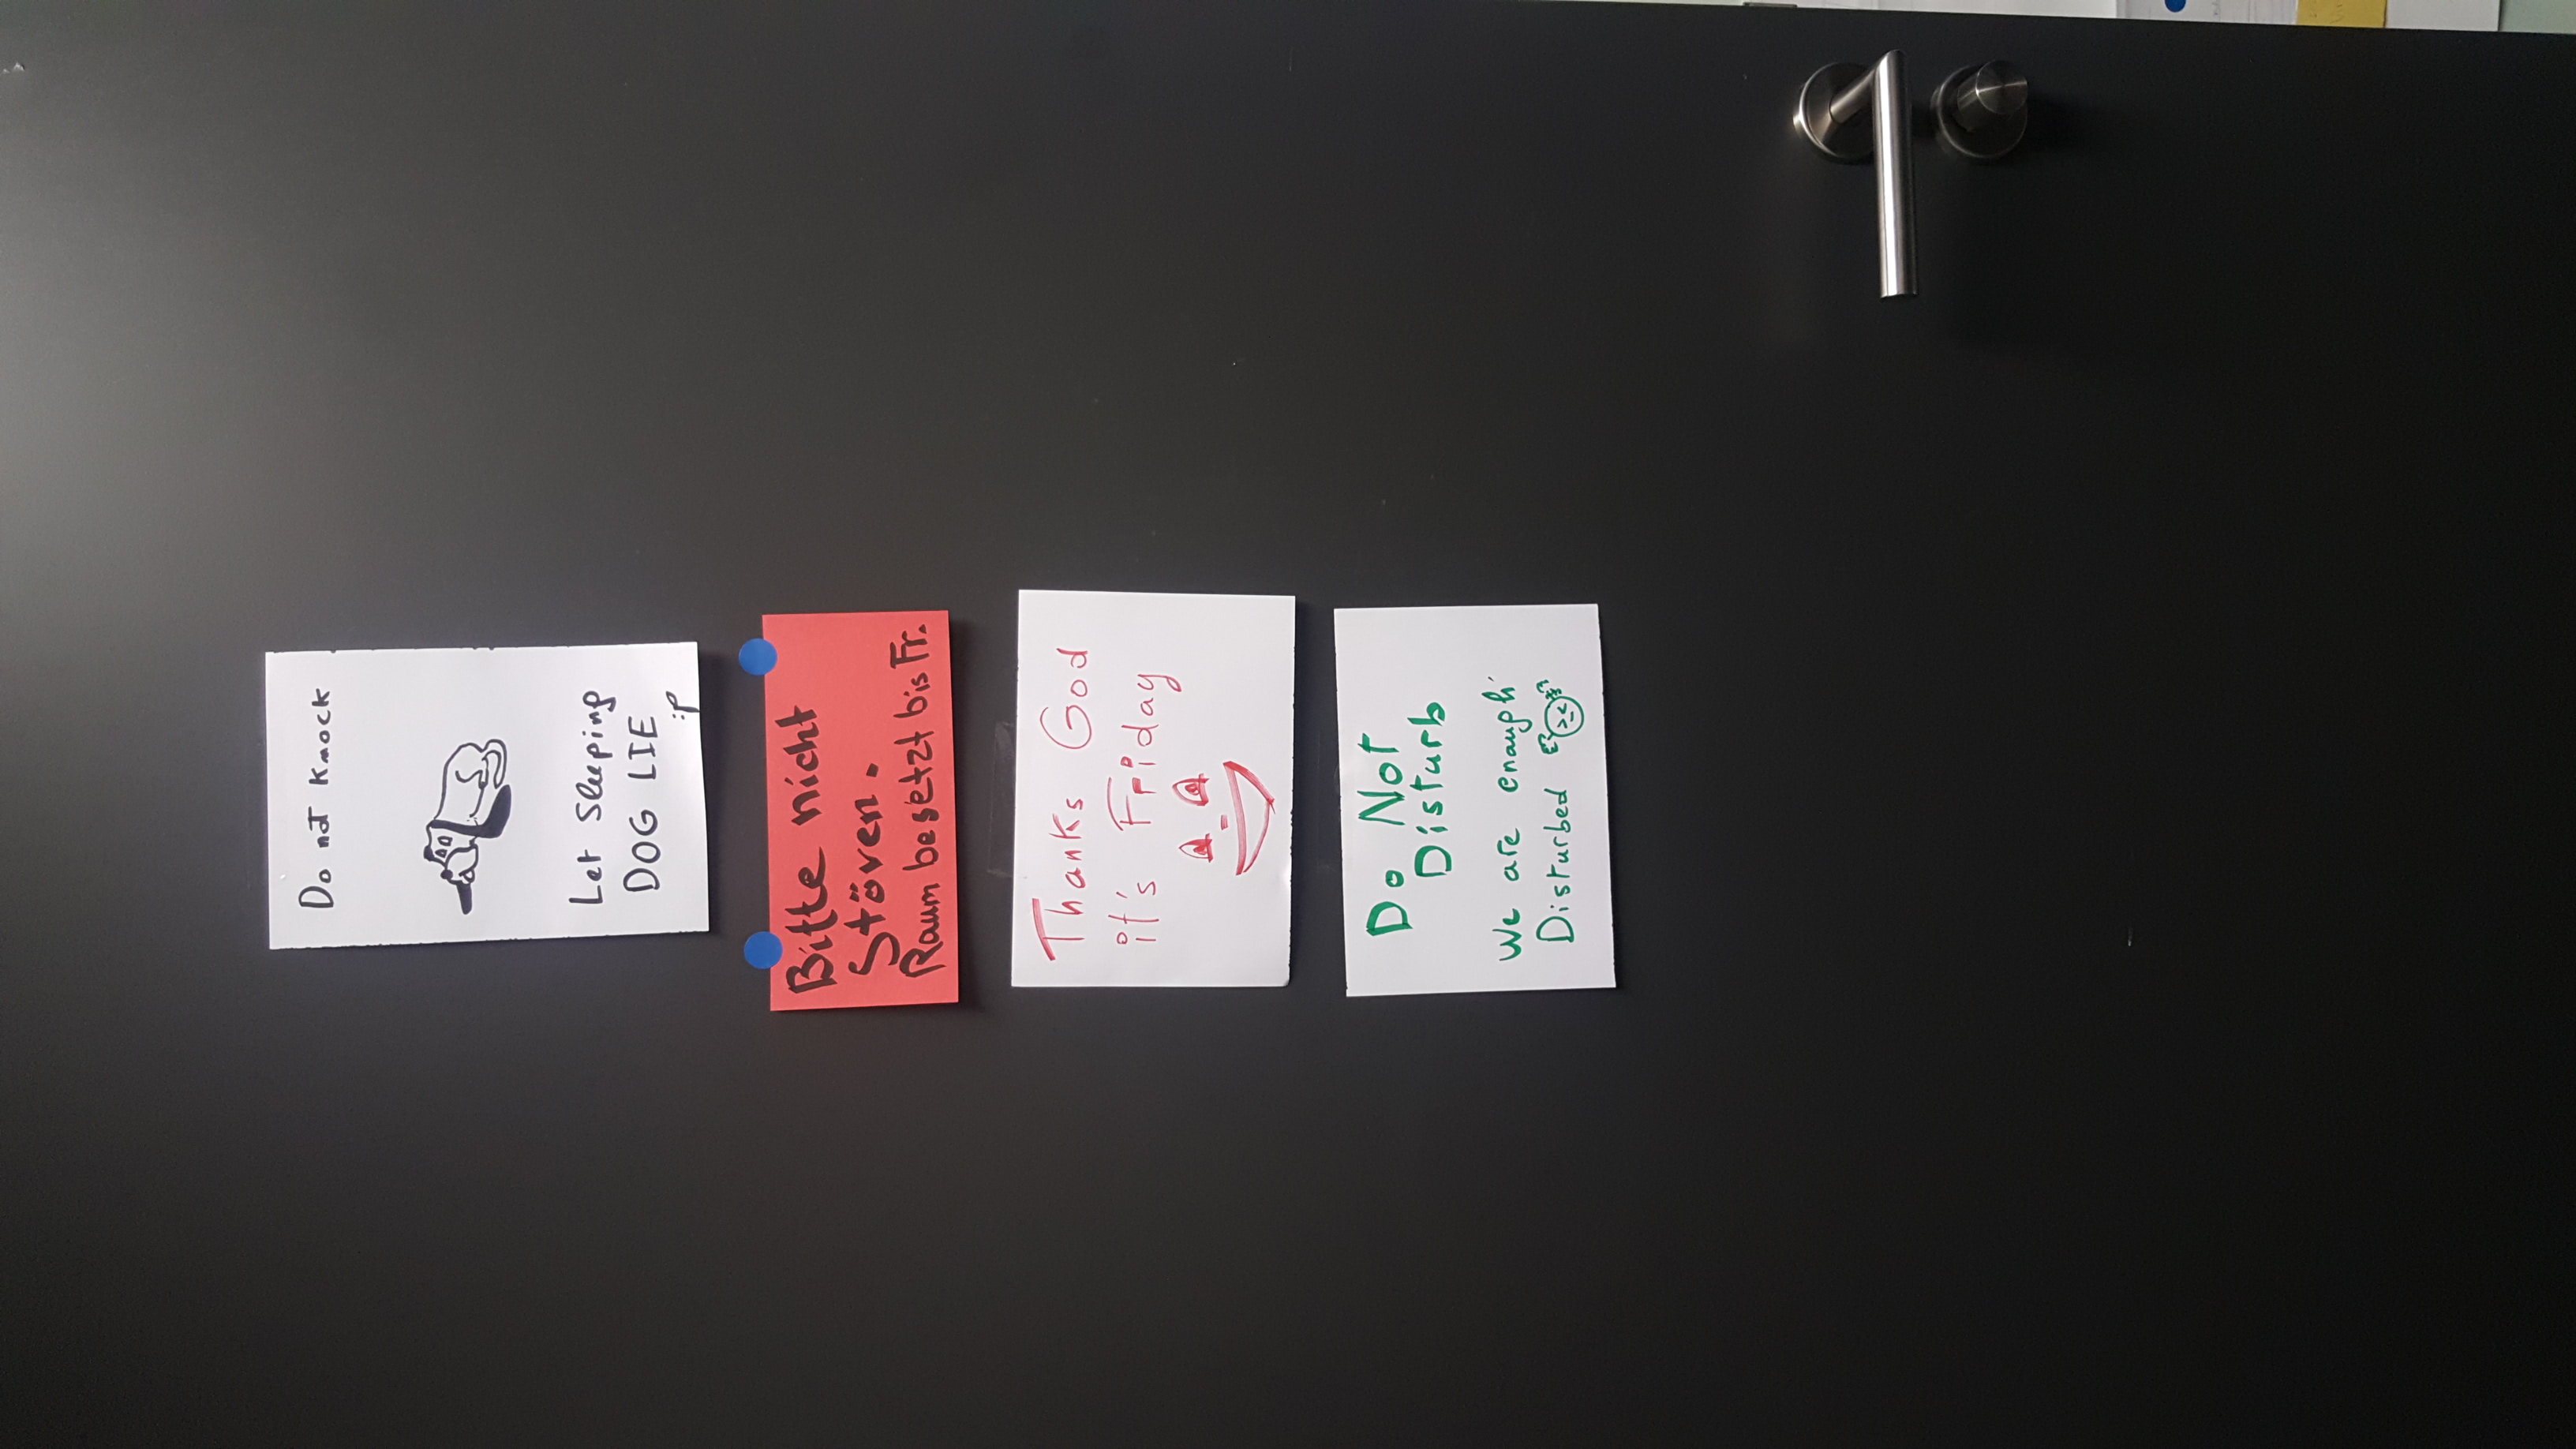 Do not Knock
Let Sleeping
DOG LIE
:P
Bitte nicht
Stören.
Raum besetzt bis Fr.
Thanks God
it's Friday
Do Not
Disturb
We are enaugh
Disturbed